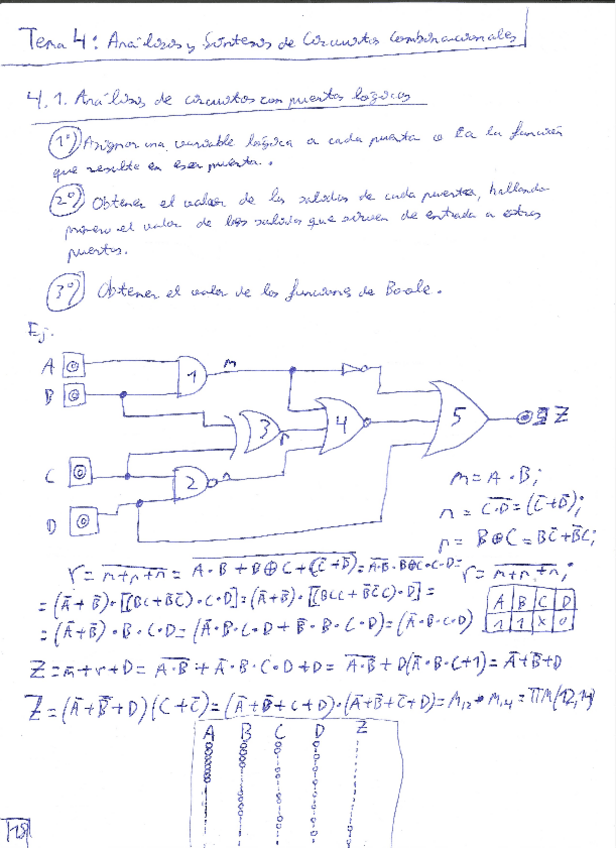 Tema 4: Análisis y Síntesis de Circuitos Combinacionales
4.1. Análisis de circuitos con puertas lógicas
1º) Asignar una variable lógica a cada puerta o Ea la función
que resulte en esa puerta.
2º) Obtener el valor de las salidas de cada puerta, hallando
primero el valor de las salidas que sirven de entrada a otras
puertas.
3º) Obtener el valor de las funciones de Boole.
Ej.
A
B
C
D
1
m
3
r
2
n
4
5
Z
m = A · B;
n = \overline{C·D} = (C̄+D̄);
p = B⊕C = BC̄+B̄C;
r = \overline{m+p+n} = \overline{A·B + B⊕C + (C̄+D̄)} = \overline{A·B}·\overline{B⊕C}·C·D =
r = \overline{m+p+n};
= (Ā+B̄)·[(BC+B̄C̄)·C·D] = (Ā+B̄)·[(BCC+B̄C̄C)·D] =
= (Ā+B̄)·B·C·D = (Ā·B·C·D + B̄·B·C·D) = (Ā·B·C·D)
A B C D
1 1 X 0
Z = m̄+r+D = \overline{A·B} + Ā·B·C·D+D = \overline{A·B} + D(Ā·B·C+1) = Ā+B̄+D
Z = (Ā+B̄+D)(C+C̄) = (Ā+B̄+C+D)·(Ā+B̄+C̄+D) = M₁₂·M₁₄ = ΠM(12,14)
A B C D Z